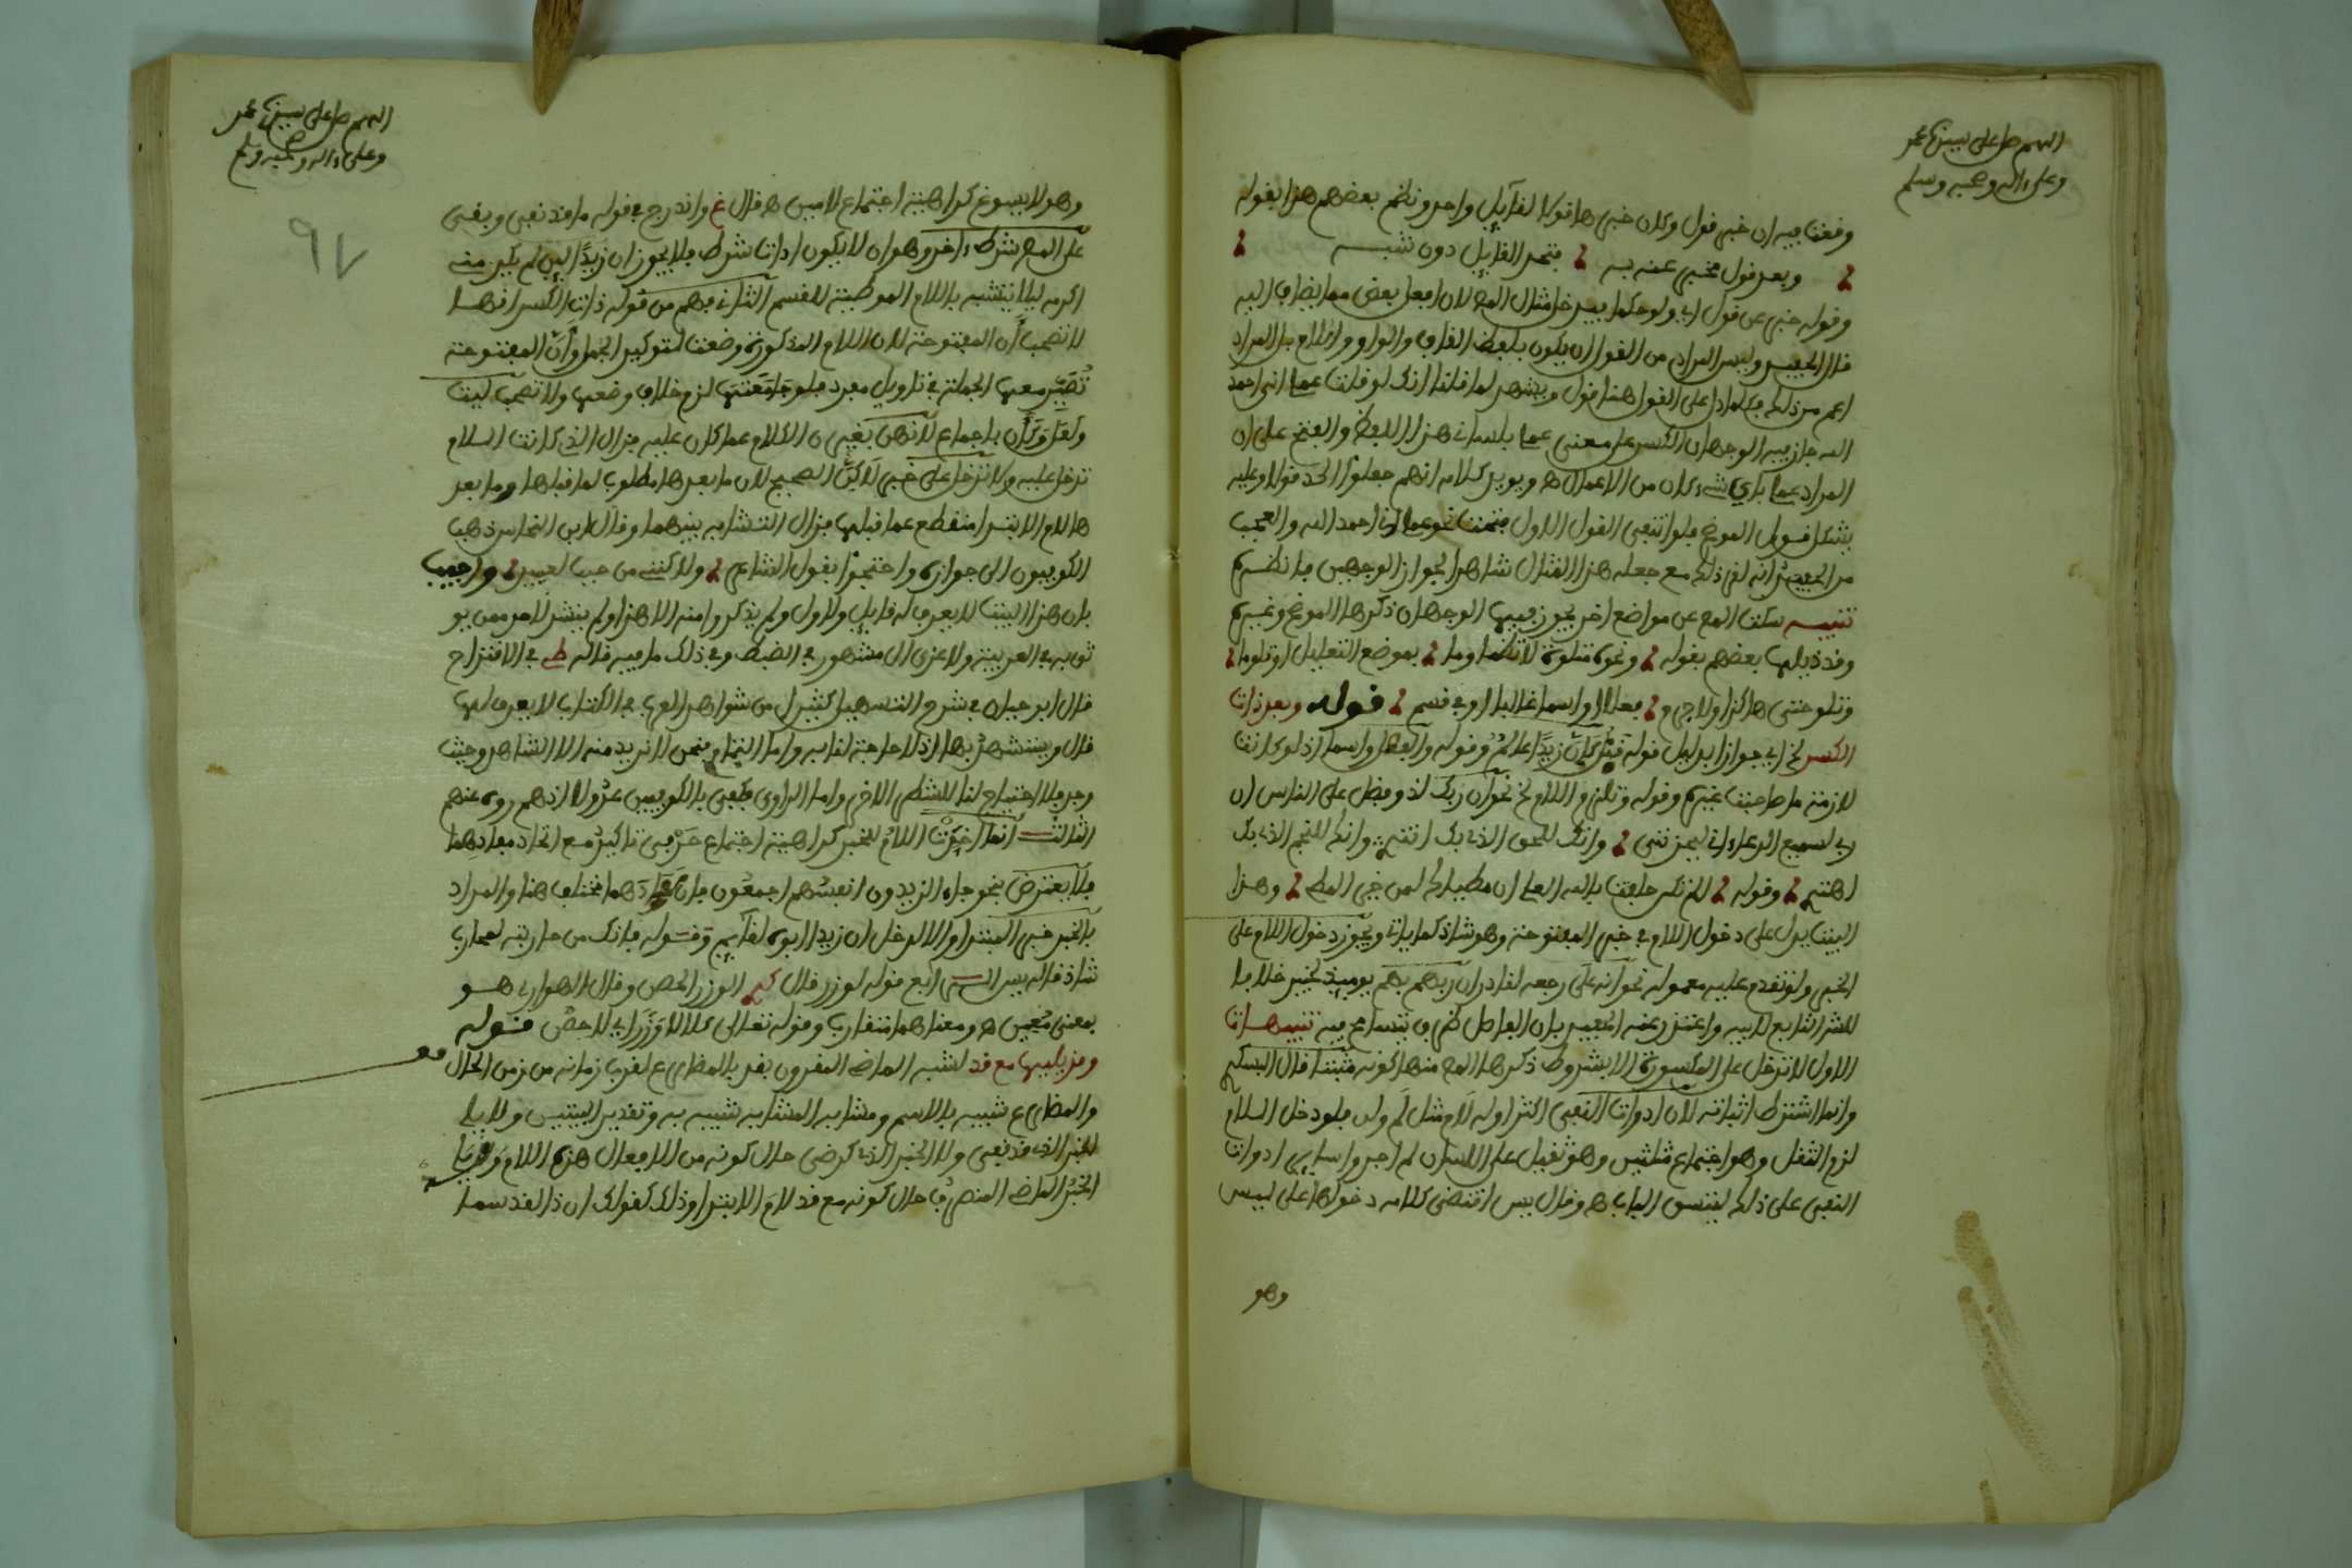 اللهم صل على سيدنا محمد
وعلى ءاله وصحبه وسلم
وقعت فيه ان خبر قول وكان خبرها قولا لقايل واحد ونظم بعضهم هذا بقوله
وبعد قول مخبر عنه به متحد القايل دون شبه
وقوله خبر عن قول اي ولو حكما فيدخل مثال المص لان افعل بعض مما يضاف اليه
قال الحفيد وليس المراد من القول ان يكون بلفظ القاف والواو واللام بل المراد
اعم من ذلك فكلما دل على القول هنا قول ويشهد لما قلنا انك لو قلت عملي اني احمد
الله جاز فيه الوجهان الكسر على معنى عملي بلساني هذا اللفظ والفتح على ان
المراد عملي باي شيء كان من الاعمال ه ويويد كلامه انهم جعلوا الحمد قولا وعليه
يشكل قول الموضح فلو انتفى القول الاول فتحت نحو عملي اني احمد الله والعجب
من الحفيد انه نقل ذلك مع جعله هذا المثال شاهدا لجواز الوجهين فانظره
تنبيه سكت المص عن مواضع اخر يجوز فيها الوجهان ذكرها الموضح وغيره
وقد ذيلها بعضهم بقوله ونحوه تتلوه لا تظما وما بموضع التعليل او تلو اما
وتلو حتى هاكذا ولا جرم و فعلا او اسما غالبا او في قسم قوله وبعد ذات
الكسر لخ اي جوازا بدليل قوله قبل كان زيدا عالم وقوله والفعل واسما اذ لو كانت
لازمة ما صاحبت غيره وقوله وتلزم اللام لخ نحو ان ربك لذو فضل على الناس ان
ربي لسميع الدعاء اني ليحزنني وانك للحق الذي بك انتمي وانك للنجم الذي بك
اهتدي وقوله الم تكن حلفت بالله العلي ان مطاياك لمن خير المطي وهذا
البيت يدل على دخول اللام في خبر المفتوحة وهو شاذ كما ياتي ويجوز دخول اللام على
الخبر ولو تقدم عليه معموله نحو انه على رجعه لقادر ان ربهم بهم يوميذ لخبير خلافا
للشارح تابع لابيه واعتذر عنه الحفيد بان الفاصل ظرف يتسامح فيه تنبيهات
الاول لا تدخل على المكسورة الا بشروط ذكرها المص منها كونه مثبتا قال البسكري
وانما اشترط اثباته لان ادوات النفي اكثر اوله لام مثل لم ولن فلو دخل اللام
لزم الثقل وهو اجتماع مثلين وهو ثقيل على اللسان ثم اجروا ساير ادوات
النفي على ذلك ليتسق الباب ه وقال يس اقتضى كلامه دخولها على ليس
وهو
اللهم صل على سيدنا محمد
وعلى ءاله وصحبه وسلم
٩٧
وهو لا يسوغ كراهية اجتماع لامين ه قال غ واندرج في قوله ما قد نفي وبقي
على المص شرط ءاخر وهو ان لا يكون اداة شرط فلا يجوز ان زيدا لين لم يكرمنه
اكرمه ليلا تشبه باللام الموطية للقسم الثاني فهم من قوله ذات الكسر انها
لا تصحب ان المفتوحة لان اللام المذكورة وضعت لتوكيد الجمل وان المفتوحة
تصير معها الجملة في تاويل مفرد فلو جامعتها لزم خلاف وضعها ولا تصحب ليت
ولعل وكان باجماع لانهن يغيرن الكلام عما كان عليه فزال الذي كانت اللام
تدخل عليه ولا تدخل على خبر لاكن الصحيح لان ما بعدها مطلوب لما قبلها وما بعد
ها لام الابتدا منقطع عما قبلها فزال التشابه بينهما وقال ابن النحاس ذهب
الكوفيون الى جوازه واحتجوا بقول الشاعر ولاكنني من حبها لعميد واجيب
بان هذا البيت لا يعرف له قايل ولا اول ولم يذكروا منه الا هذا ولم ينشد لاحد ممن يو
ثق به في العربية ولا عزي الى مشهور في الضبط وفي ذلك ما فيه قاله ط في الاقتراح
قال ابو حيان في شرح التسهيل كثير من شواهد العرب في الكتاب لا يعرف لها
قال ويستشهد بها اذ لا حاجة لنا به واما التمام فنحن لا نريد منه الا الشاهد وحيث
وجد فلا احتياج لنا للشطر الاخر واما الراوي فكفى بالكوفيين عدولا انهم رووه عنهم
الثالث انما اخرت اللام للخبر كراهية اجتماع حرفي تاكيد مع اتحاد مفادهما
فلا يعترض بنحو جاء الزيدون انفسهم اجمعون فان مفادهما مختلف هنا والمراد
بالخبر خبر المبتدا والا لدخل ان زيدا ابوه لقايم وقوله فانك من حاربته لمحارب
شاذ قاله يس الرابع قوله لوزر قال كم الوزر الحصن وقال الهواري هو
بمعنى معين ه ومعناهما متقارب وقوله تعالى كلا لا وزر اي لا حصن قوله
وقد يليها مع قد لشبه الماضي المقرون بقد بالمضارع لقرب زمانه من زمن الحال
والمضارع شبيه بالاسم ومشابه المشابه شبيه به وتقدير البيتين ولا يلي
الخبر الذي قد نفي ولا الخبر الذي كرضي حال كونه من الافعال هذه اللام
الخبر الماضي المتصرف حال كونه مع قد لام الابتدا وذلك كقولك ان ذا لقد سما